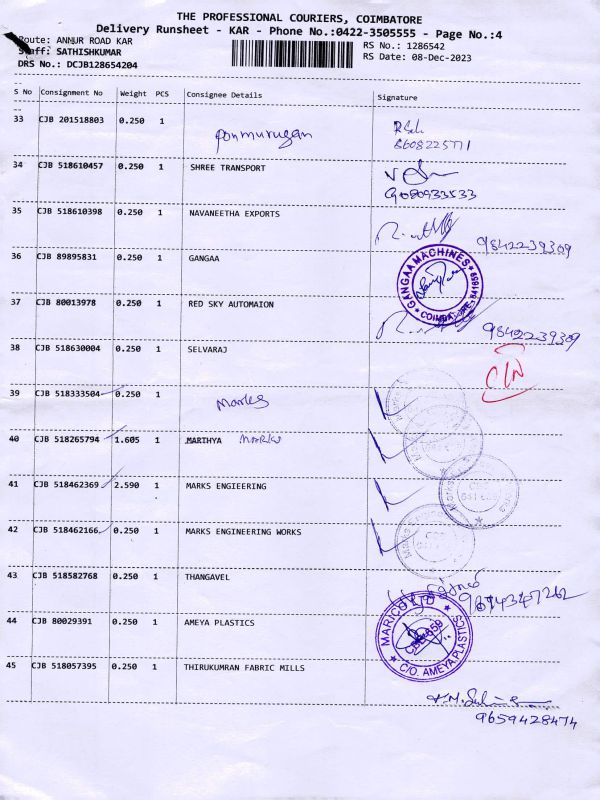 THE PROFESSIONAL COURIERS, COIMBATORE
Delivery Runsheet - KAR - Phone No.:0422-3505555 - Page No.:4
Route: ANNUR ROAD KAR RS No.: 1286542
Staff: SATHISHKUMAR RS Date: 08-Dec-2023
DRS No.: DCJB128654204
S No Consignment No Weight PCS Consignee Details Signature
33 CJB 201518803 0.250 1 Ponmurugan
8608225771
34 CJB 518610457 0.250 1 SHREE TRANSPORT
9080933533
35 CJB 518610398 0.250 1 NAVANEETHA EXPORTS
9842239309
36 CJB 89895831 0.250 1 GANGAA
GANGAA MACHINES
37 CJB 80013978 0.250 1 RED SKY AUTOMAION
9842239309
38 CJB 518630004 0.250 1 SELVARAJ
39 CJB 518333504 0.250 1 Marks
40 CJB 518265794 1.605 1 MARTHYA MARKS
41 CJB 518462369 2.590 1 MARKS ENGIEERING
42 CJB 518462166 0.250 1 MARKS ENGINEERING WORKS
43 CJB 518582768 0.250 1 THANGAVEL
44 CJB 80029391 0.250 1 AMEYA PLASTICS
MARICO LTD
C/O. AMEYA PLASTICS
45 CJB 518057395 0.250 1 THIRUKUMRAN FABRIC MILLS
9659428474